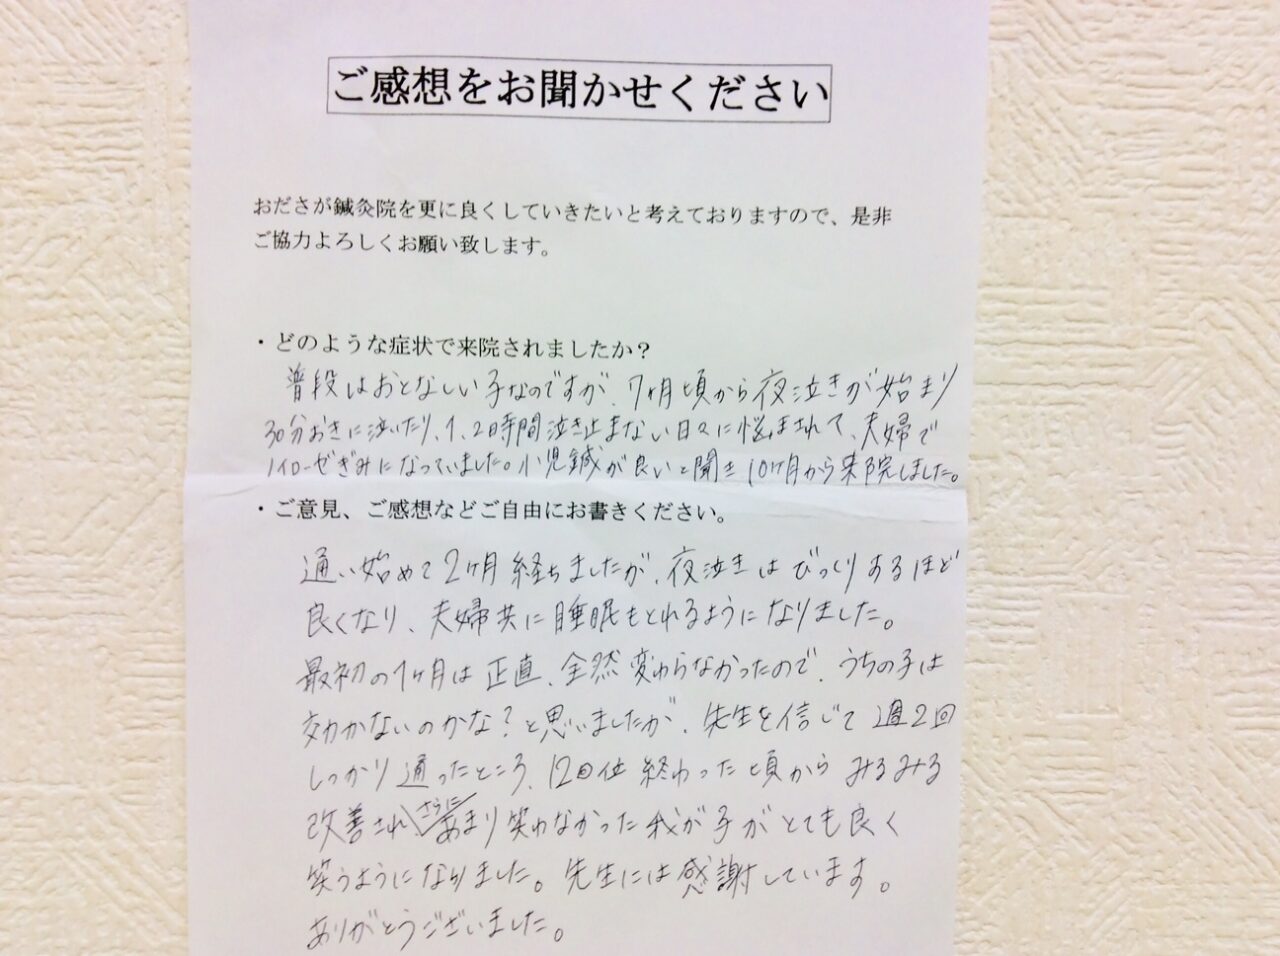 ご感想をお聞かせください
おださが鍼灸院を更に良くしていきたいと考えておりますので、是非
ご協力よろしくお願い致します。
・どのような症状で来院されましたか？
普段はおとなしい子なのですが、7ヶ月頃から夜泣きが始まり
30分おきに泣いたり、1、2時間泣き止まない日々に悩まされて、夫婦で
ノイローゼぎみになっていました。小児鍼が良いと聞き10ヶ月から来院しました。
・ご意見、ご感想などご自由にお書きください。
通い始めて2ヶ月経ちましたが、夜泣きはびっくりするほど
良くなり、夫婦共に睡眠もとれるようになりました。
最初の1ヶ月は正直、全然変わらなかったので、うちの子は
効かないのかな？と思いましたが、先生を信じて週2回
しっかり通ったところ、12回位終わった頃からみるみる
改善されさらにあまり笑わなかった我が子がとても良く
笑うようになりました。先生には感謝しています。
ありがとうございました。